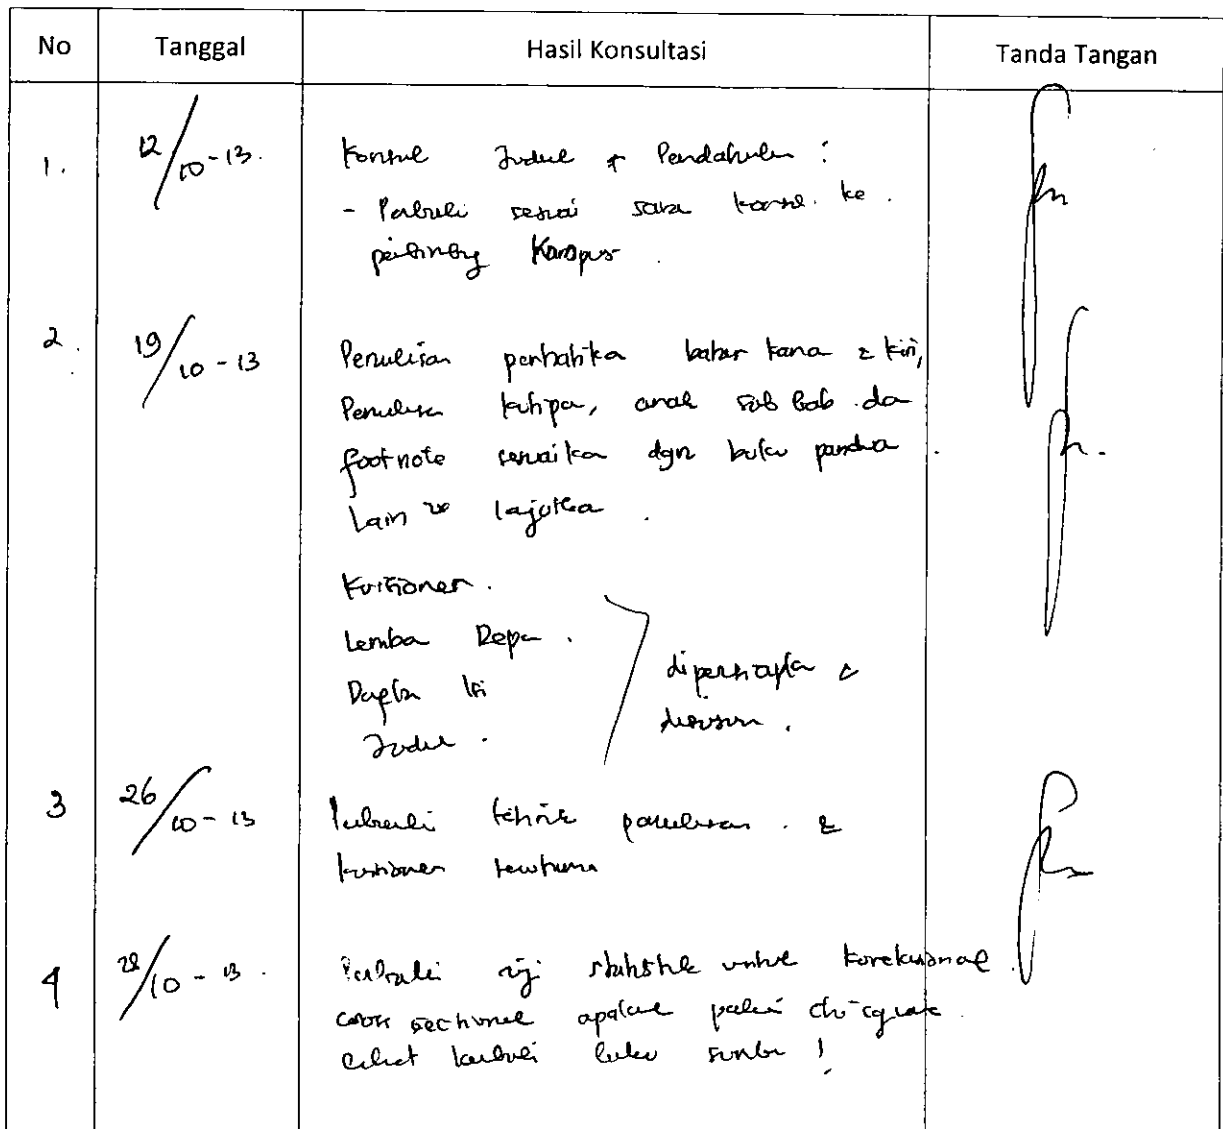 No Tanggal Hasil Konsultasi Tanda Tangan
1. 12/10-13. Konsul Judul + Pendahuluan :
- Perbaiki sesuai saran konsul ke
pembimbing Kampus.
2. 19/10-13 Penulisan perhatikan batas kanan & kiri,
Penulisan kutipan, anak sub bab dan
footnote sesuaikan dgn buku panduan.
Lain lanjutkan.
Kuisioner.
Lembar Depan.
Daftar Isi
Judul.
dipersiapkan &
disusun.
3 26/10-13 Perbaiki tehnik penulisan. &
kuisioner
4 28/10-13. Perbaiki uji statistik untuk korelasional
cross sectional apakah pakai chi-square.
Lihat kembali buku sumber !